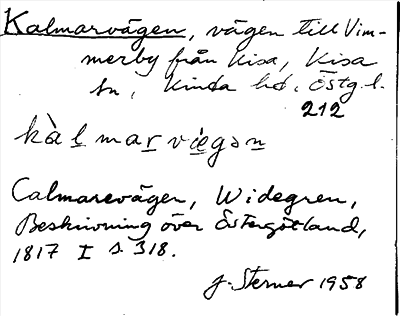 Kalmarvägen, vägen till Vim-
merby från Kisa, Kisa
sn, Kinda hd, Östg. l.
212
kàlmarviegən
Calmarevägen, Widegren,
Beskrivning över Östergötland,
1817 I s. 318.
J. Sterner 1958